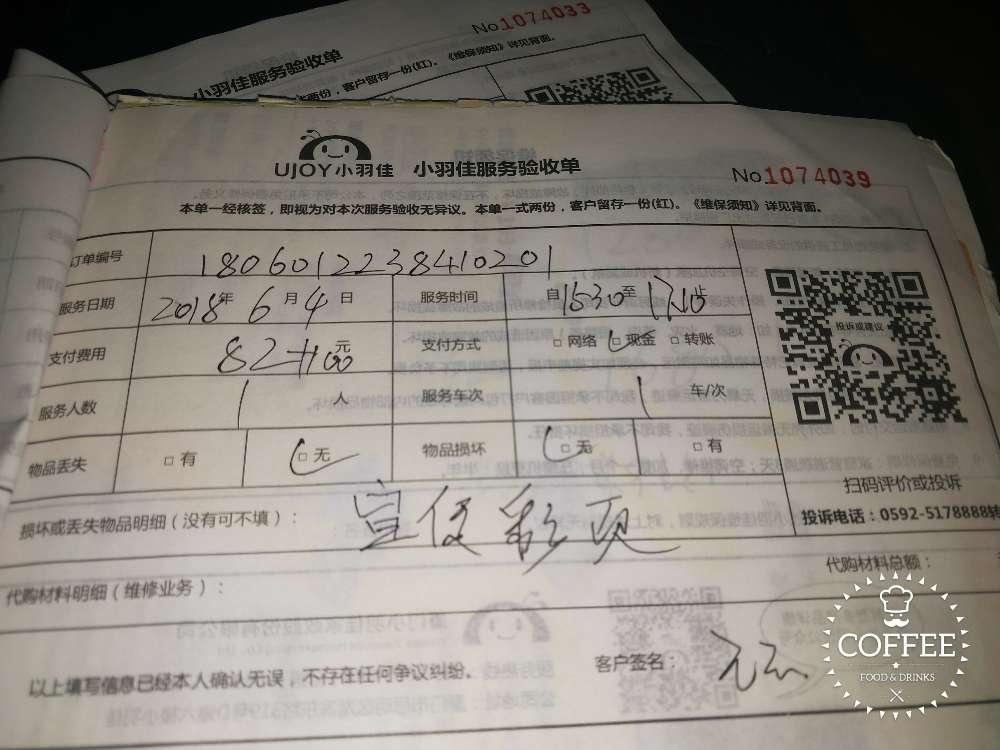 No.1074033
小羽佳服务验收单
两份，客户留存一份(红)。《维保须知》详见背面。
UJOY小羽佳 小羽佳服务验收单
No.1074039
本单一经核签，即视为对本次服务验收无异议。本单一式两份，客户留存一份(红)。《维保须知》详见背面。
订单编号 1806012238410201
服务日期 2018年 6月 4日 服务时间 自1530至1710止
支付费用 82+100元 支付方式 □网络 □现金 □转账
投诉或建议
服务人数 1人 服务车次 1车/次
物品丢失 □有 □无 物品损坏 □无 □有
扫码评价或投诉
损坏或丢失物品明细（没有可不填）：
投诉电话：0592-5178888转
代购材料明细（维修业务）：
代购材料总额：
以上填写信息已经本人确认无误，不存在任何争议纠纷。
客户签名：
COFFEE
FOOD & DRINKS